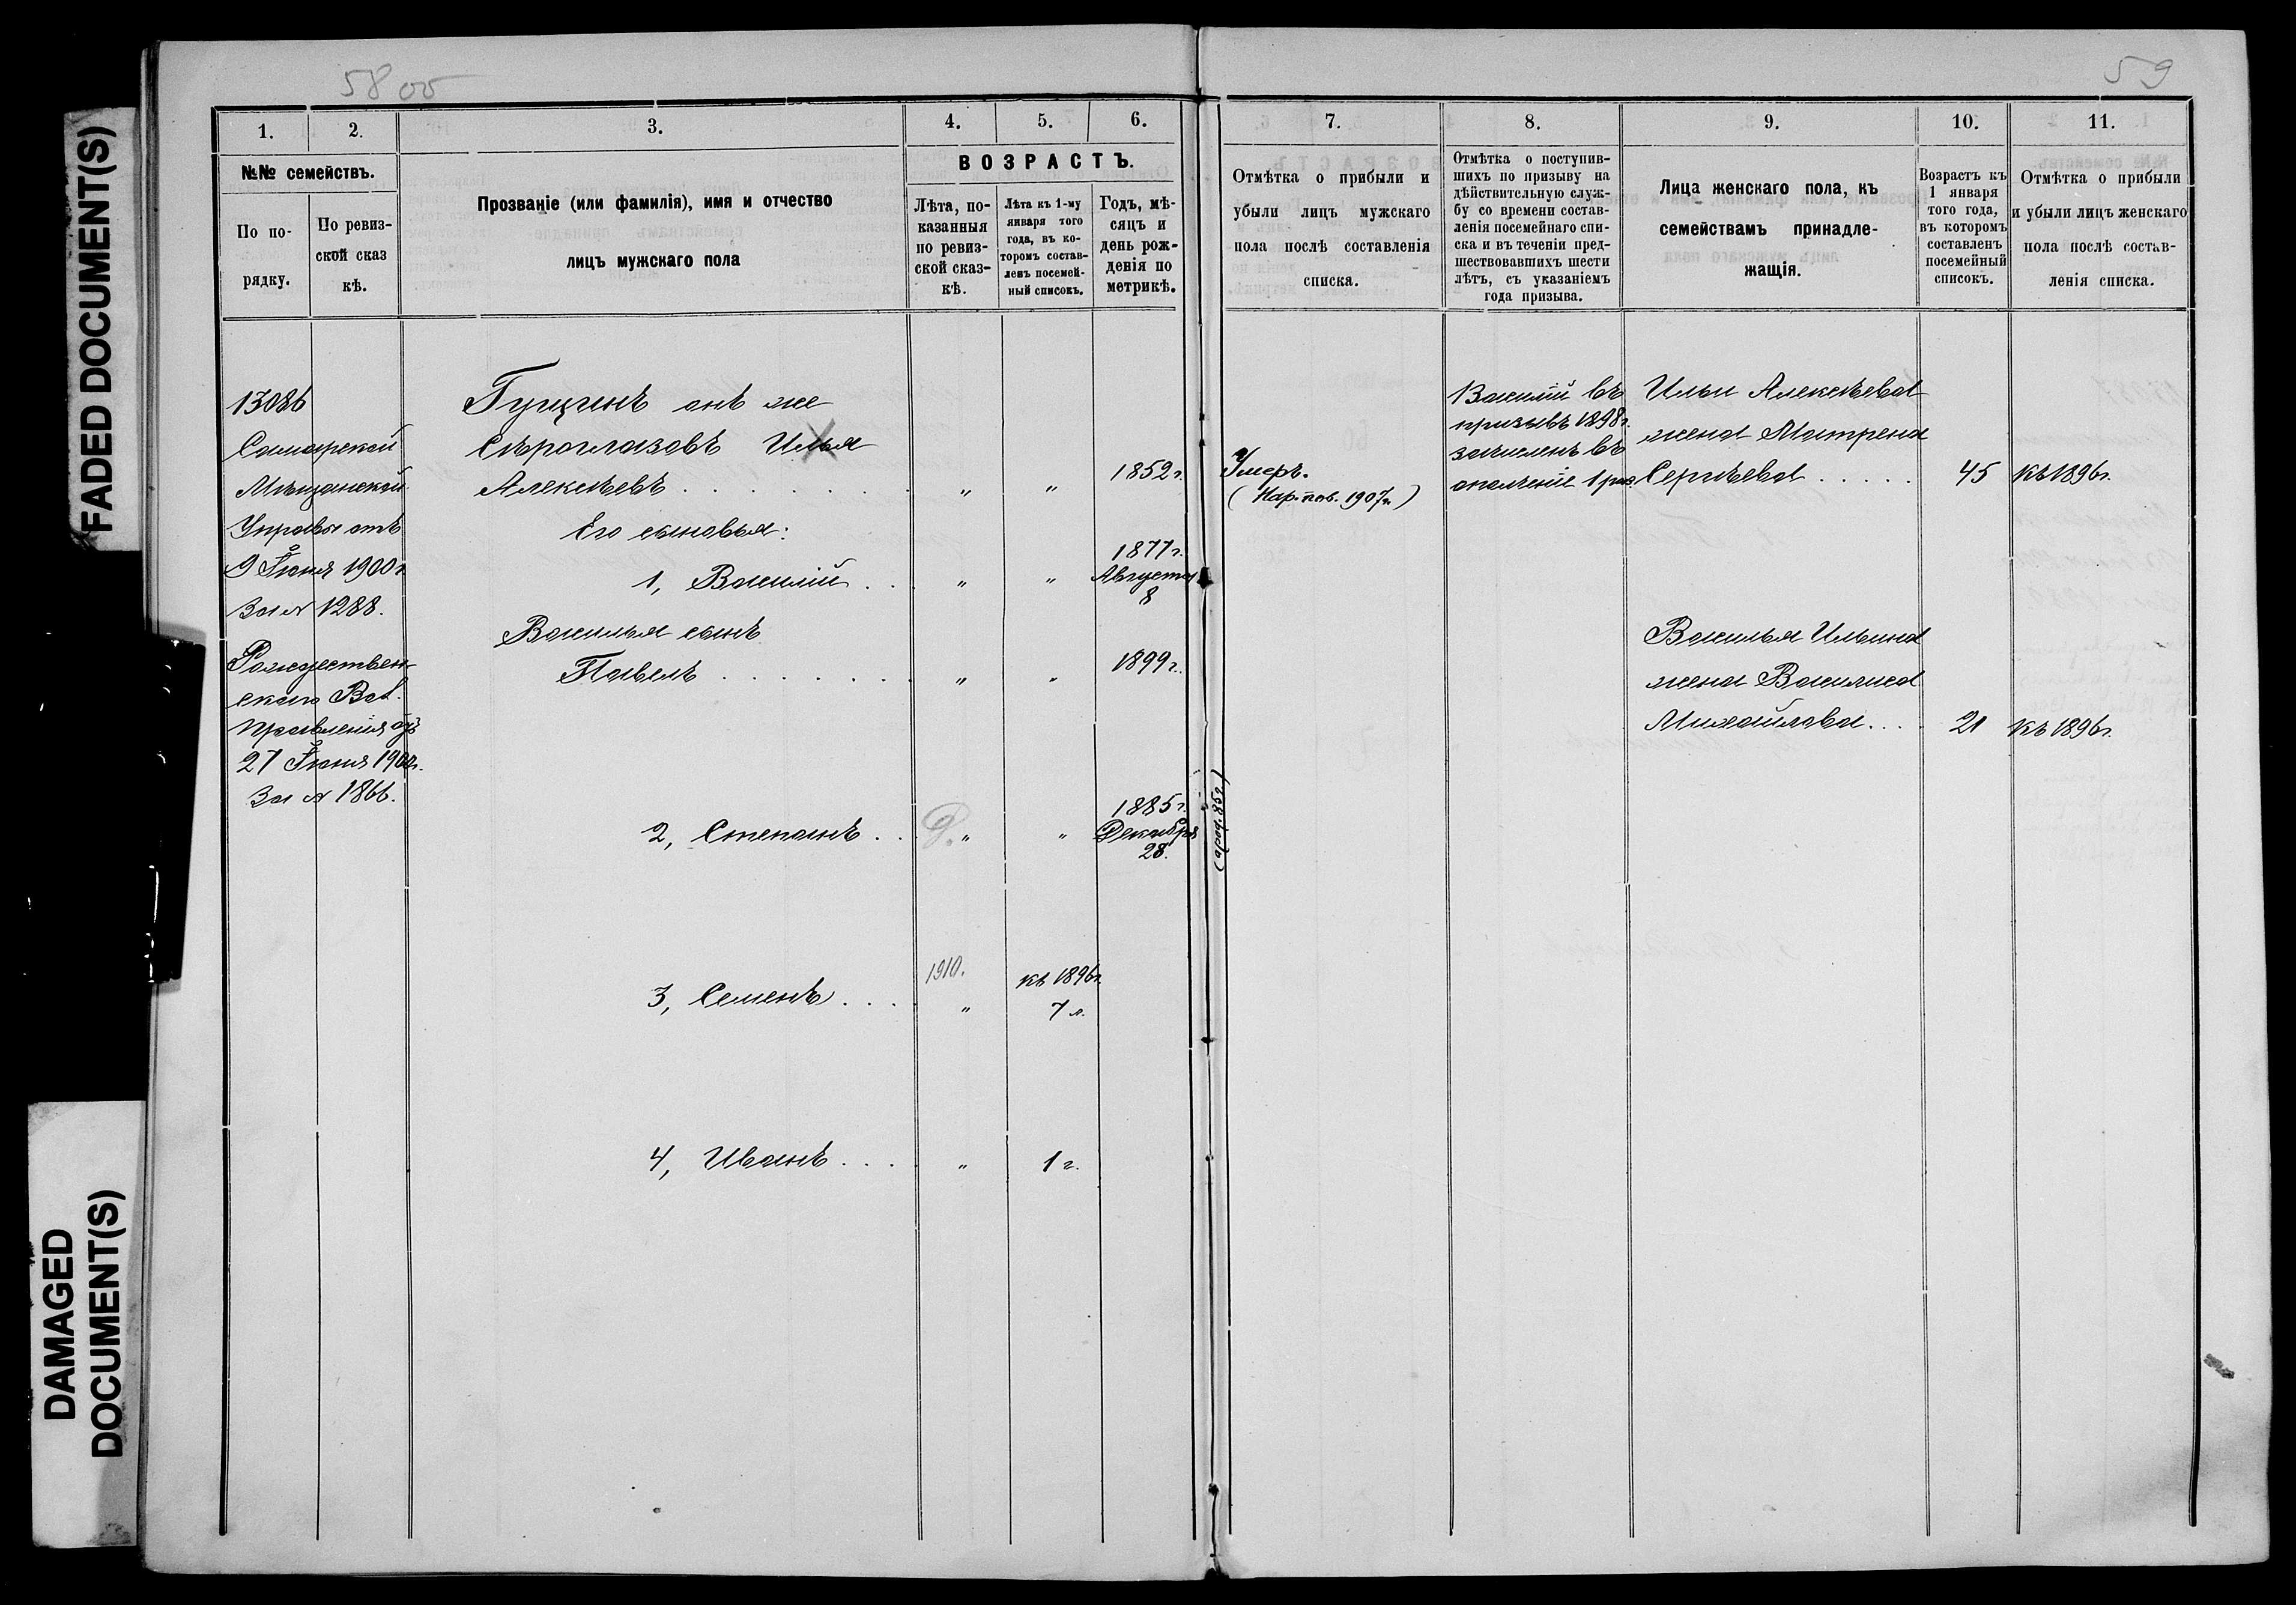 FADED DOCUMENT(S)
DAMAGED
DOCUMENT(S)
58 об
59
1.
2.
3.
4.
5.
6.
№№ семействъ.
По по-
рядку.
По ревиз-
ской сказ
кѣ.
Прозваніе (или фамилія), имя и отчество
лицъ мужскаго пола
ВОЗРАСТЪ.
Лѣта, по-
казанныя
по ревиз-
ской сказ-
кѣ.
Лѣта къ 1-му
января того
года, въ ко-
торомъ состав-
ленъ посемей-
ный списокъ.
Годъ, мѣ-
сяцъ и
день рож-
денія по
метрикѣ.
7.
8.
9.
10.
11.
Отмѣтка о прибыли и
убыли лицъ мужскаго
пола послѣ составленія
списка.
Отмѣтка о поступив-
шихъ по призыву на
дѣйствительную служ-
бу со времени состав-
ленія посемейнаго спи-
ска и въ теченіи пред-
шествовавшихъ шести
лѣтъ, съ указаніемъ
года призыва.
Лица женскаго пола, къ
семействамъ принадле-
жащія.
Возрастъ къ
1 января
того года,
въ которомъ
составленъ
посемейный
списокъ.
Отмѣтка о прибыли
и убыли лицъ женскаго
пола послѣ состав-
ленія списка.
13086
Самарской
Мѣщанской
Управы отъ
9 Іюня 1900 г
За № 1288.
Рождествен-
скаго Вол.
Правленія отъ
27 Іюня 1900г.
За № 1866.
Гущинъ онъ же
Сѣроглазовъ Илья
Алексѣевъ . . . . . . . " " 1852 г.
Его сыновья:
1, Василій . . " "
1877 г.
Августа
8
Василья сынъ
Павелъ . . . . . . . " " 1899 г.
2, Степанъ . . " "
1885 г.
Декабря
28.
3, Семенъ . . . "
1910.
къ 1896г.
7 л.
4, Иванъ . . . . " 1 г.
Умеръ.
(Нар. пов. 1907г.)
(а род. 85г)
Василій въ
призывъ 1898г.
зачисленъ въ
ополченіе 1 раз.
Ильи Алексѣева
жена Матрена
Сергѣева . . . . . 45 къ 1896г.
Василья Ильина
жена Василиса
Михайлова . . . 21 къ 1896г.